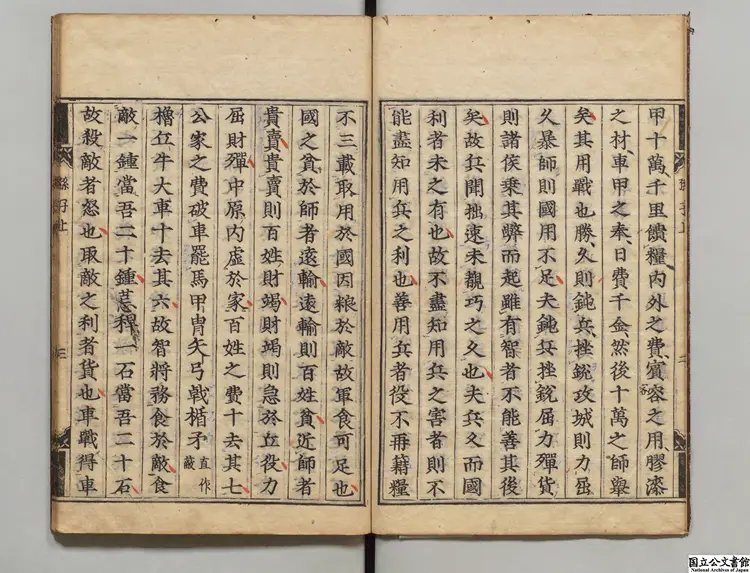 甲十萬千里饋糧内外之費賓容之用膠漆
客
之材車甲之奉日費千金然後十萬之師舉
矣其用戰也勝久則鈍兵挫銳攻城則力屈
久暴師則國用不足夫鈍兵挫銳屈力殫貨
則諸侯乘其弊而起雖有智者不能善其後
矣故兵聞拙速未覩巧之久也夫兵久而國
利者未之有也故不盡知用兵之害者則不
能盡知用兵之利也善用兵者役不再藉糧
不三載取用於國因粮於敵故軍食可足也
國之貧於師者遠輸遠輸則百姓貧近師者
貴賣貴賣則百姓財竭財竭則急於丘役力
屈財殫中原内虛於家百姓之費十去其七
公家之費破車罷馬甲冑矢弓戟楯矛直作蔽
櫓丘牛大車十去其六故智將務食於敵食
敵一鍾當吾二十鍾秆一石當吾二十石
故殺敵者怒也取敵之利者貨也車戰得車
孫子上
三
国立公文書館
National Archives of Japan